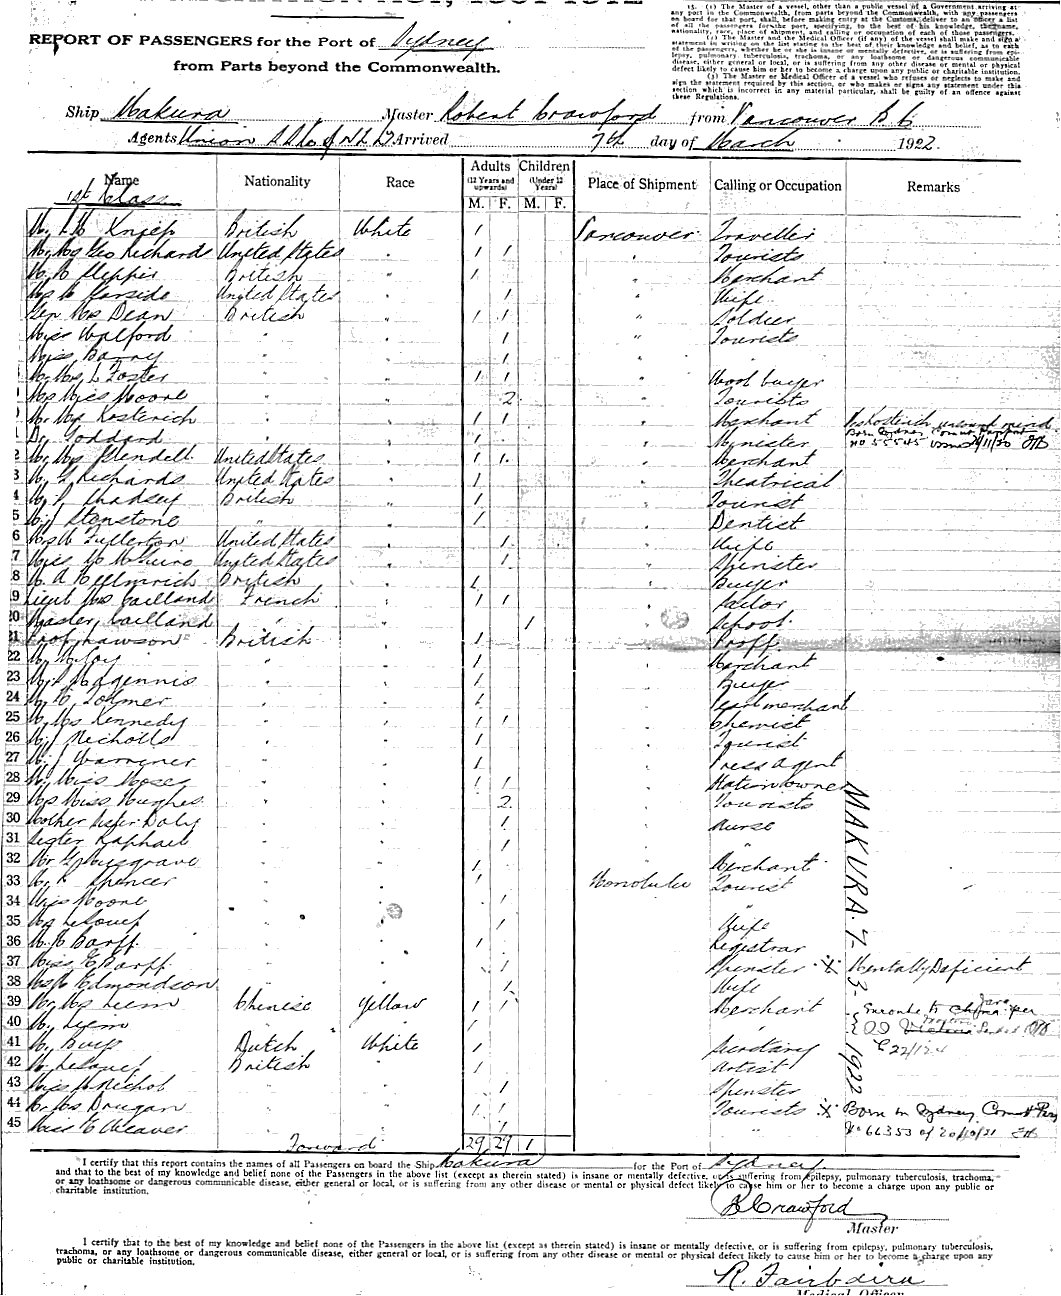 REPORT OF PASSENGERS for the Port of Sydney
from Parts beyond the Commonwealth.
15. (1) The Master of a vessel, other than a public vessel of a Government, arriving at
any port in the Commonwealth, from parts beyond the Commonwealth, with any passengers
on board for that port, shall, before making entry at the Customs, deliver to an officer a list
of all the passengers for the port, specifying, to the best of his knowledge, the name,
nationality, race, place of shipment, and calling or occupation of each of those passengers.
(2) The Master and the Medical Officer (if any) of the vessel shall make and sign a
statement in writing on the list stating to the best of their knowledge and belief, as to each
of the passengers, whether he or she is insane or mentally defective, or is suffering from epi-
lepsy, pulmonary tuberculosis, trachoma, or any loathsome or dangerous communicable
disease, either general or local, or is suffering from any other disease or mental or physical
defect likely to cause him or her to become a charge upon any public or charitable institution.
(3) The Master or Medical Officer of a vessel who refuses or neglects to make and
sign the statement required by this section, or who makes or signs any statement under this
section which is incorrect in any material particular, shall be guilty of an offence against
these Regulations.
Ship Makura Master Robert Crawford from Vancouver B.C.
Agents Union S.S. Co of N.Z. Ld Arrived 7th day of March 1922.
Name Nationality Race Adults (12 Years and upwards) M. F. Children (Under 12 Years) M. F. Place of Shipment Calling or Occupation Remarks
1st Class
British White 1 Vancouver Traveller
Mr Mrs Geo Richards United States " 1 1 " Tourists
British " 1 " Merchant
Mrs Garside United States " 1 " Wife
Gen Mrs Dean British " 1 1 " Soldier
Miss Walford " " 1 " Tourists
Miss Barry " " 1 " "
Mr Mrs L Foster " " 1 1 " Wool buyer
Mrs Miss Moore " " 2 " Tourists
Mr Mrs Kosterich " " 1 1 " Merchant
Dr Goddard " " 1 " Minister
2 Mr Mrs Blendell United States " 1 1 " Merchant
3 Richards United States " 1 " Theatrical
4 Chadsey British " 1 " Tourist
5 Mr J Stenstone " " 1 " Dentist
6 Mrs W Fullerton United States " 1 " Wife
7 Miss United States " 1 " Spinster
18 Mr A Hellmrich British " 1 " Buyer
19 Lieut Mrs Cailland French " 1 1 " Sailor
20 Master Cailland " " 1 " School
21 Prof Lawson British " 1 " Proff.
22 " " 1 " Merchant
23 Maginnis " " 1 " Buyer
24 " " 1 " Pearl merchant
25 Mr Mrs Kennedy " " 1 1 " Chemist
26 Mr J Nicholls " " 1 " Tourist
27 Mr J " " 1 " Press agent
28 Mr Miss Moses " " 1 1 " Station owner
29 Mrs Miss Hughes " " 2 " Tourists
30 Mother Sister Daly " " 1 " Nurse
31 Sister Raphael " " 1 " "
32 Mr G Musgrave " " 1 " Merchant
33 Spencer " " 1 Honolulu Tourist
34 Miss Moore " " 1 "
35 Mrs LeSouef " " 1 Wife
36 Barff " " 1 Registrar
37 Miss E Barff " " 1 Spinster X Mentally Deficient
38 Mrs Edmondson " " 1 Wife
39 Mr Mrs Liem Chinese Yellow 1 1 Merchant Enroute to China Java per
40 " " 1 "
41 Mr Buys Dutch White 1 Secretary
42 LeSouef British " 1 Artist
43 Miss Nichol " " 1 Spinster
44 Mr Mrs Dougan " " 1 1 Tourists X Born in Sydney
45 Miss E Weaver " " 1 " No 66353 of 20/10/21
Forward 29 29 1
MAKURA. 7-3-1922
I certify that this report contains the names of all Passengers on board the Ship Makura for the Port of Sydney
and that to the best of my knowledge and belief none of the Passengers in the above list (except as therein stated) is insane or mentally defective, or is suffering from epilepsy, pulmonary tuberculosis, trachoma,
or any loathsome or dangerous communicable disease, either general or local, or is suffering from any other disease or mental or physical defect likely to cause him or her to become a charge upon any public or
charitable institution.
R Crawford
Master
I certify that to the best of my knowledge and belief none of the Passengers in the above list (except as therein stated) is insane or mentally defective, or is suffering from epilepsy, pulmonary tuberculosis,
trachoma, or any loathsome or dangerous communicable disease, either general or local, or is suffering from any other disease or mental or physical defect likely to cause him or her to become a charge upon any
public or charitable institution.
R. Fairbairn
Medical Officer